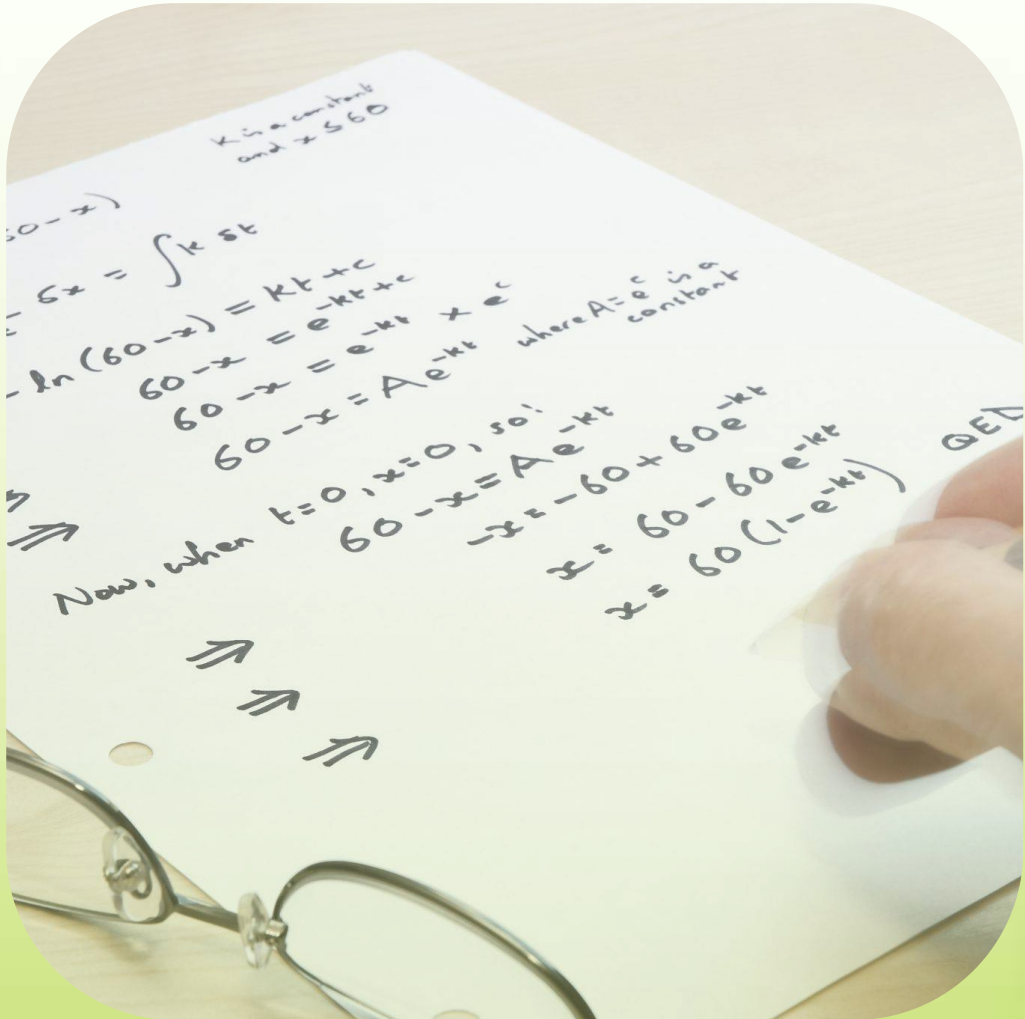 K is a constant
and x ≤ 60
60-x)
δx = ∫k δt
- ln (60-x) = kt+c
60-x = e^-kt+c
60-x = e^-kt × e^c
60-x = Ae^-kt where A=e^c is a
constant
Now, when t=0, x=0, so:
60-x = Ae^-kt
-x = -60 + 60e^-kt
x = 60 - 60e^-kt
x = 60 (1-e^-kt) QED
⇒
⇒
⇒
⇒